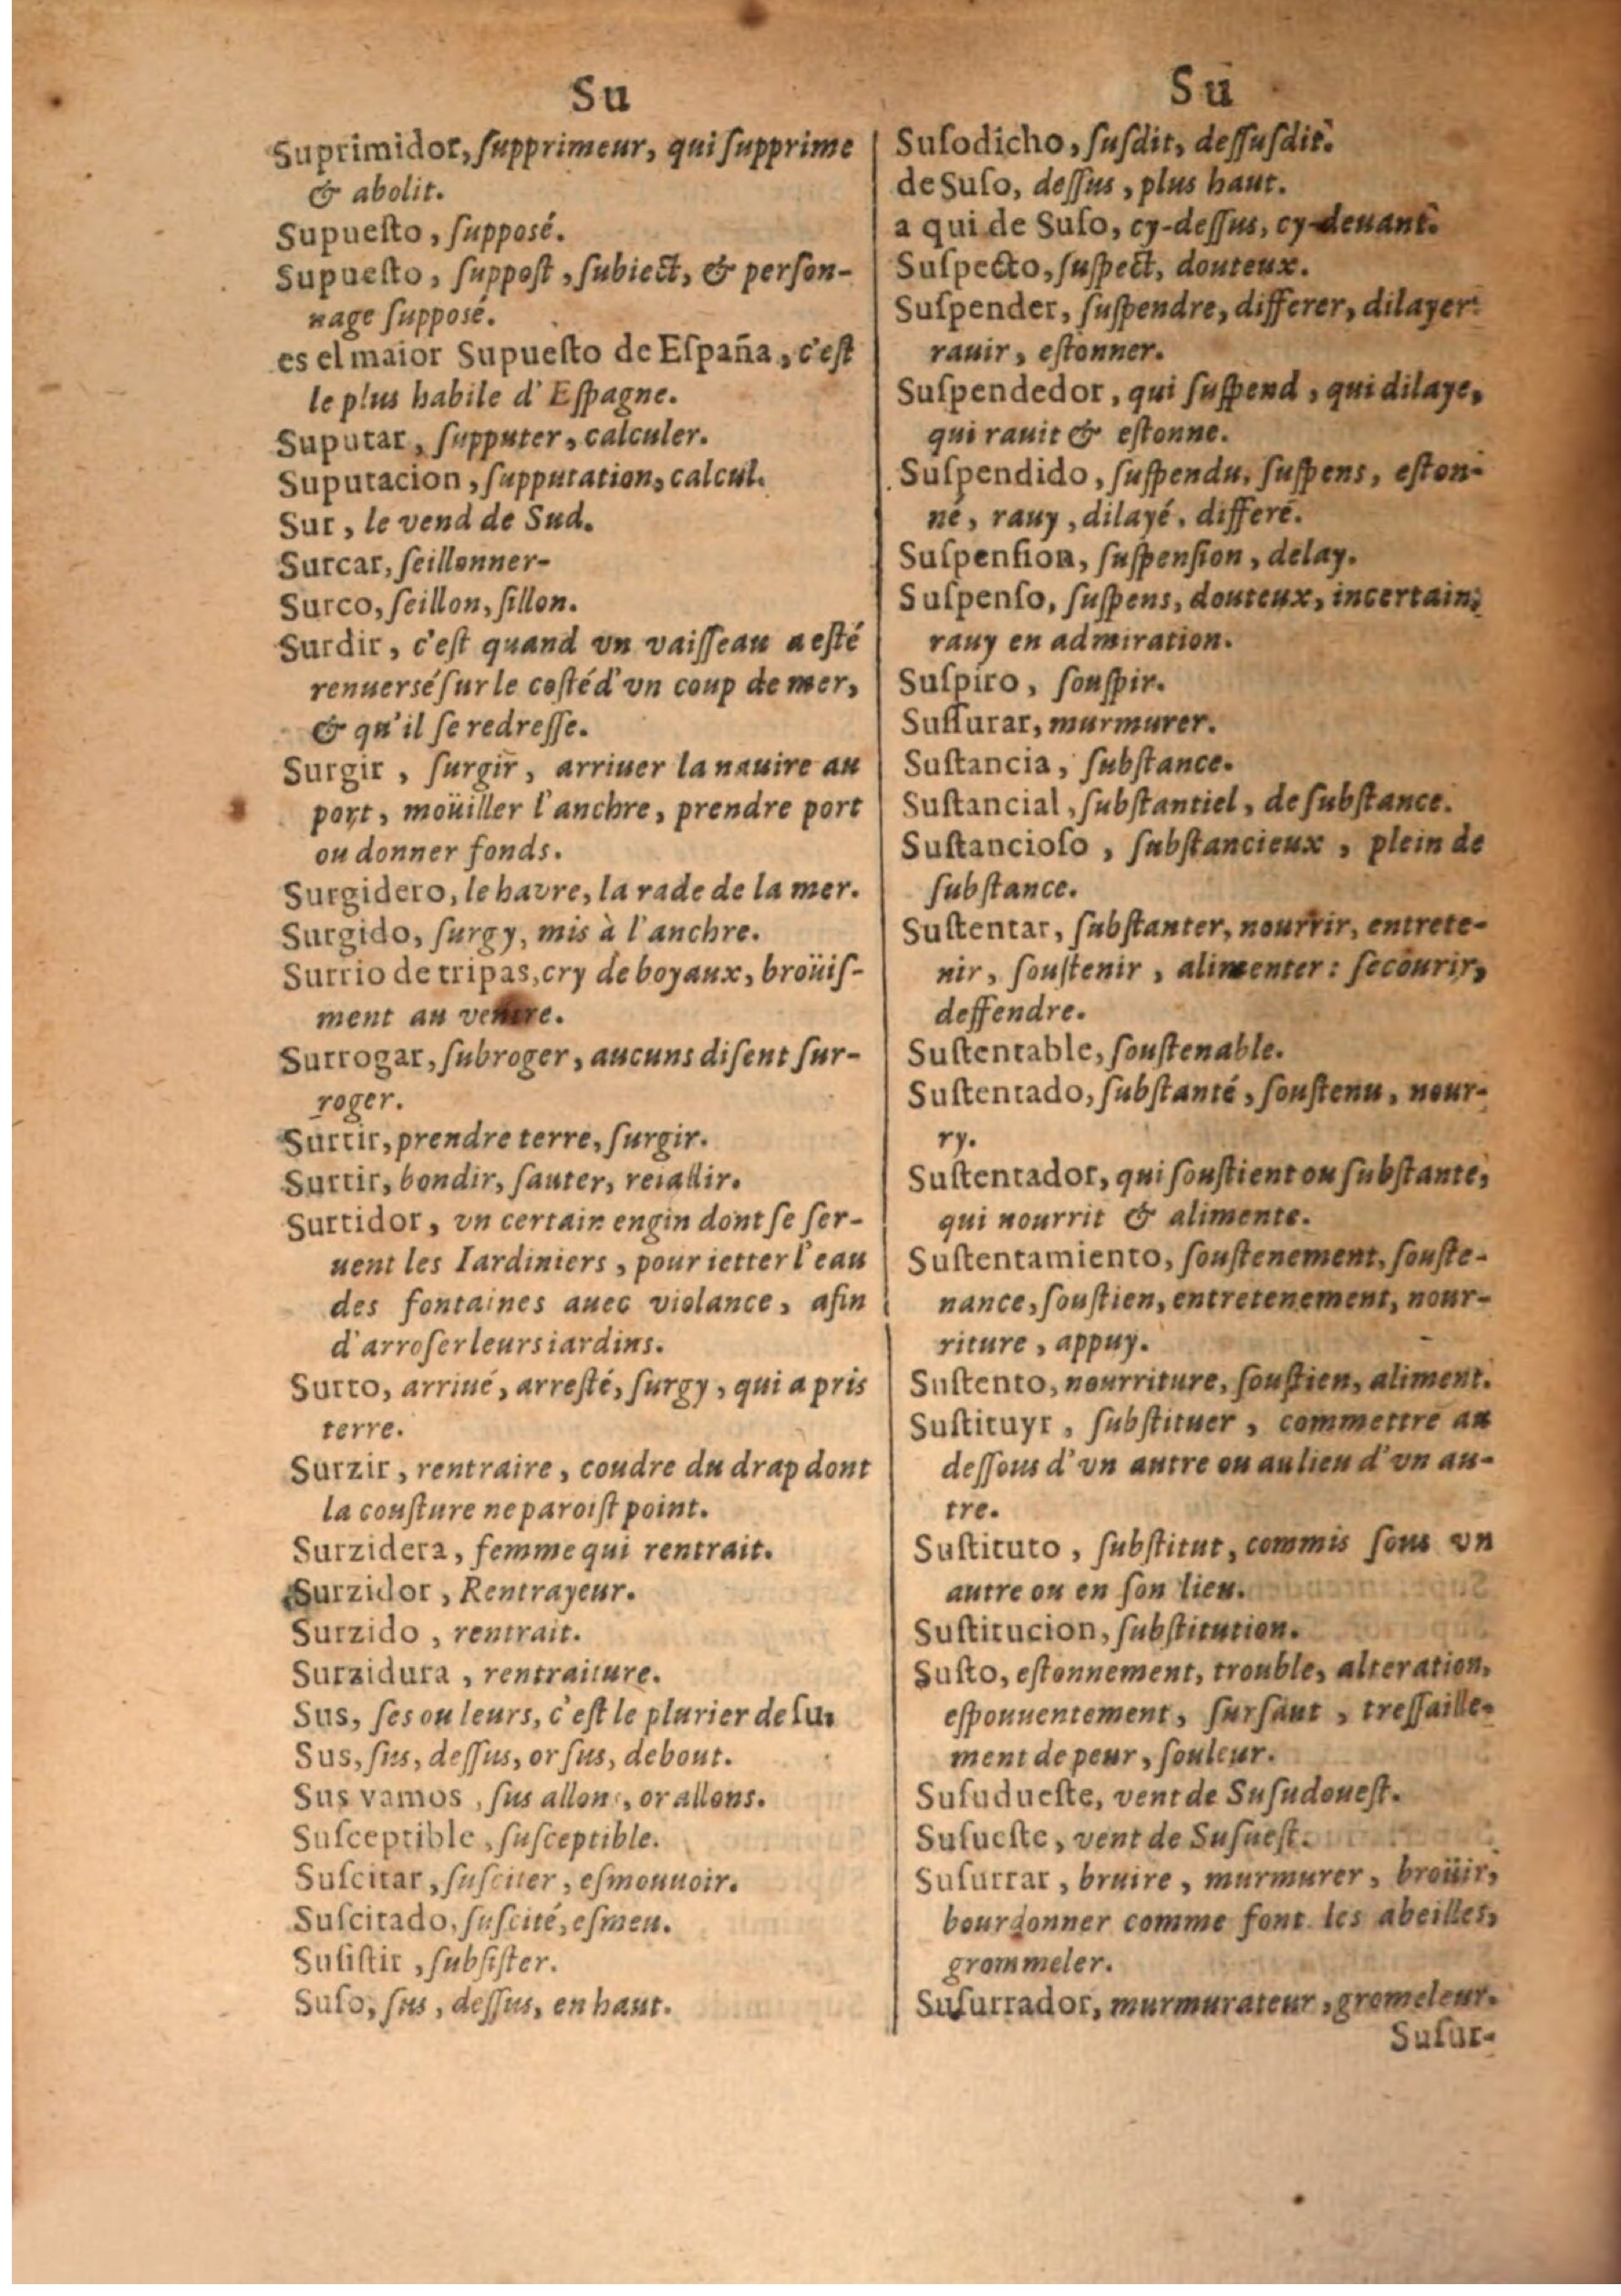 Su
Suprimidor, ſupprimeur, qui ſupprime
& abolit.
Supueſto, ſupposé.
Supueſto, ſuppoſt, ſubiect, & perſon-
nage ſupposé.
es el maior Supueſto de Eſpaña, c'eſt
le plus habile d'Eſpagne.
Suputar, ſupputer, calculer.
Suputacion, ſupputation, calcul.
Sur, le vend de Sud.
Surcar, ſeillonner-
Surco, ſeillon, ſillon.
Surdir, c'eſt quand vn vaiſſeau a eſté
renuersé ſur le coſté d'vn coup de mer,
& qu'il ſe redreſſe.
Surgir, ſurgir, arriuer la nauire au
port, moüiller l'anchre, prendre port
ou donner fonds.
Surgidero, le havre, la rade de la mer.
Surgido, ſurgy, mis à l'anchre.
Surrio de tripas, cry de boyaux, broüiſ-
ment au ventre.
Surrogar, ſubroger, aucuns diſent ſur-
roger.
Surtir, prendre terre, ſurgir.
Surtir, bondir, ſauter, reiallir.
Surtidor, vn certain engin dont ſe ſer-
uent les Iardiniers, pour ietter l'eau
des fontaines auec violance, afin
d'arroſer leurs iardins.
Surto, arriué, arreſté, ſurgy, qui a pris
terre.
Surzir, rentraire, coudre du drap dont
la couſture ne paroiſt point.
Surzidera, femme qui rentrait.
Surzidor, Rentrayeur.
Surzido, rentrait.
Surzidura, rentraiture.
Sus, ſes ou leurs, c'eſt le plurier de ſu.
Sus, ſus, deſſus, or ſus, debout.
Sus vamos, ſus allons, or allons.
Suſceptible, ſuſceptible.
Suſcitar, ſuſciter, eſmouuoir.
Suſcitado, ſuſcité, eſmeu.
Suſiſtir, ſubſiſter.
Suſo, ſus, deſſus, en haut.
Su
Suſodicho, ſuſdit, deſſuſdit.
de Suſo, deſſus, plus haut.
a qui de Suſo, cy-deſſus, cy-deuant.
Suſpecto, ſuſpect, douteux.
Suſpender, ſuſpendre, differer, dilayer:
rauir, eſtonner.
Suſpendedor, qui ſuſpend, qui dilaye,
qui rauit & eſtonne.
Suſpendido, ſuſpendu, ſuſpens, eſton-
né, rauy, dilayé, differé.
Suſpenſion, ſuſpenſion, delay.
Suſpenſo, ſuſpens, douteux, incertain,
rauy en admiration.
Suſpiro, ſouſpir.
Suſſurar, murmurer.
Suſtancia, ſubſtance.
Suſtancial, ſubſtantiel, de ſubſtance.
Suſtancioſo, ſubſtancieux, plein de
ſubſtance.
Suſtentar, ſubſtanter, nourrir, entrete-
nir, ſouſtenir, alimenter: ſecourir,
deffendre.
Suſtentable, ſouſtenable.
Suſtentado, ſubſtanté, ſouſtenu, nour-
ry.
Suſtentador, qui ſouſtient ou ſubſtante,
qui nourrit & alimente.
Suſtentamiento, ſouſtenement, ſouſte-
nance, ſouſtien, entretenement, nour-
riture, appuy.
Suſtento, nourriture, ſouſtien, aliment.
Suſtituyr, ſubſtituer, commettre au
deſſous d'vn autre ou au lieu d'vn au-
tre.
Suſtituto, ſubſtitut, commis ſous vn
autre ou en ſon lieu.
Suſtitucion, ſubſtitution.
Suſto, eſtonnement, trouble, alteration,
eſpouuentement, ſurſaut, treſſaille-
ment de peur, ſouleur.
Suſudueſte, vent de Suſudoueſt.
Suſueſte, vent de Suſueſt.
Suſurrar, bruire, murmurer, broüir,
bourdonner comme font les abeilles,
grommeler.
Suſurrador, murmurateur, gromeleur.
Suſur-